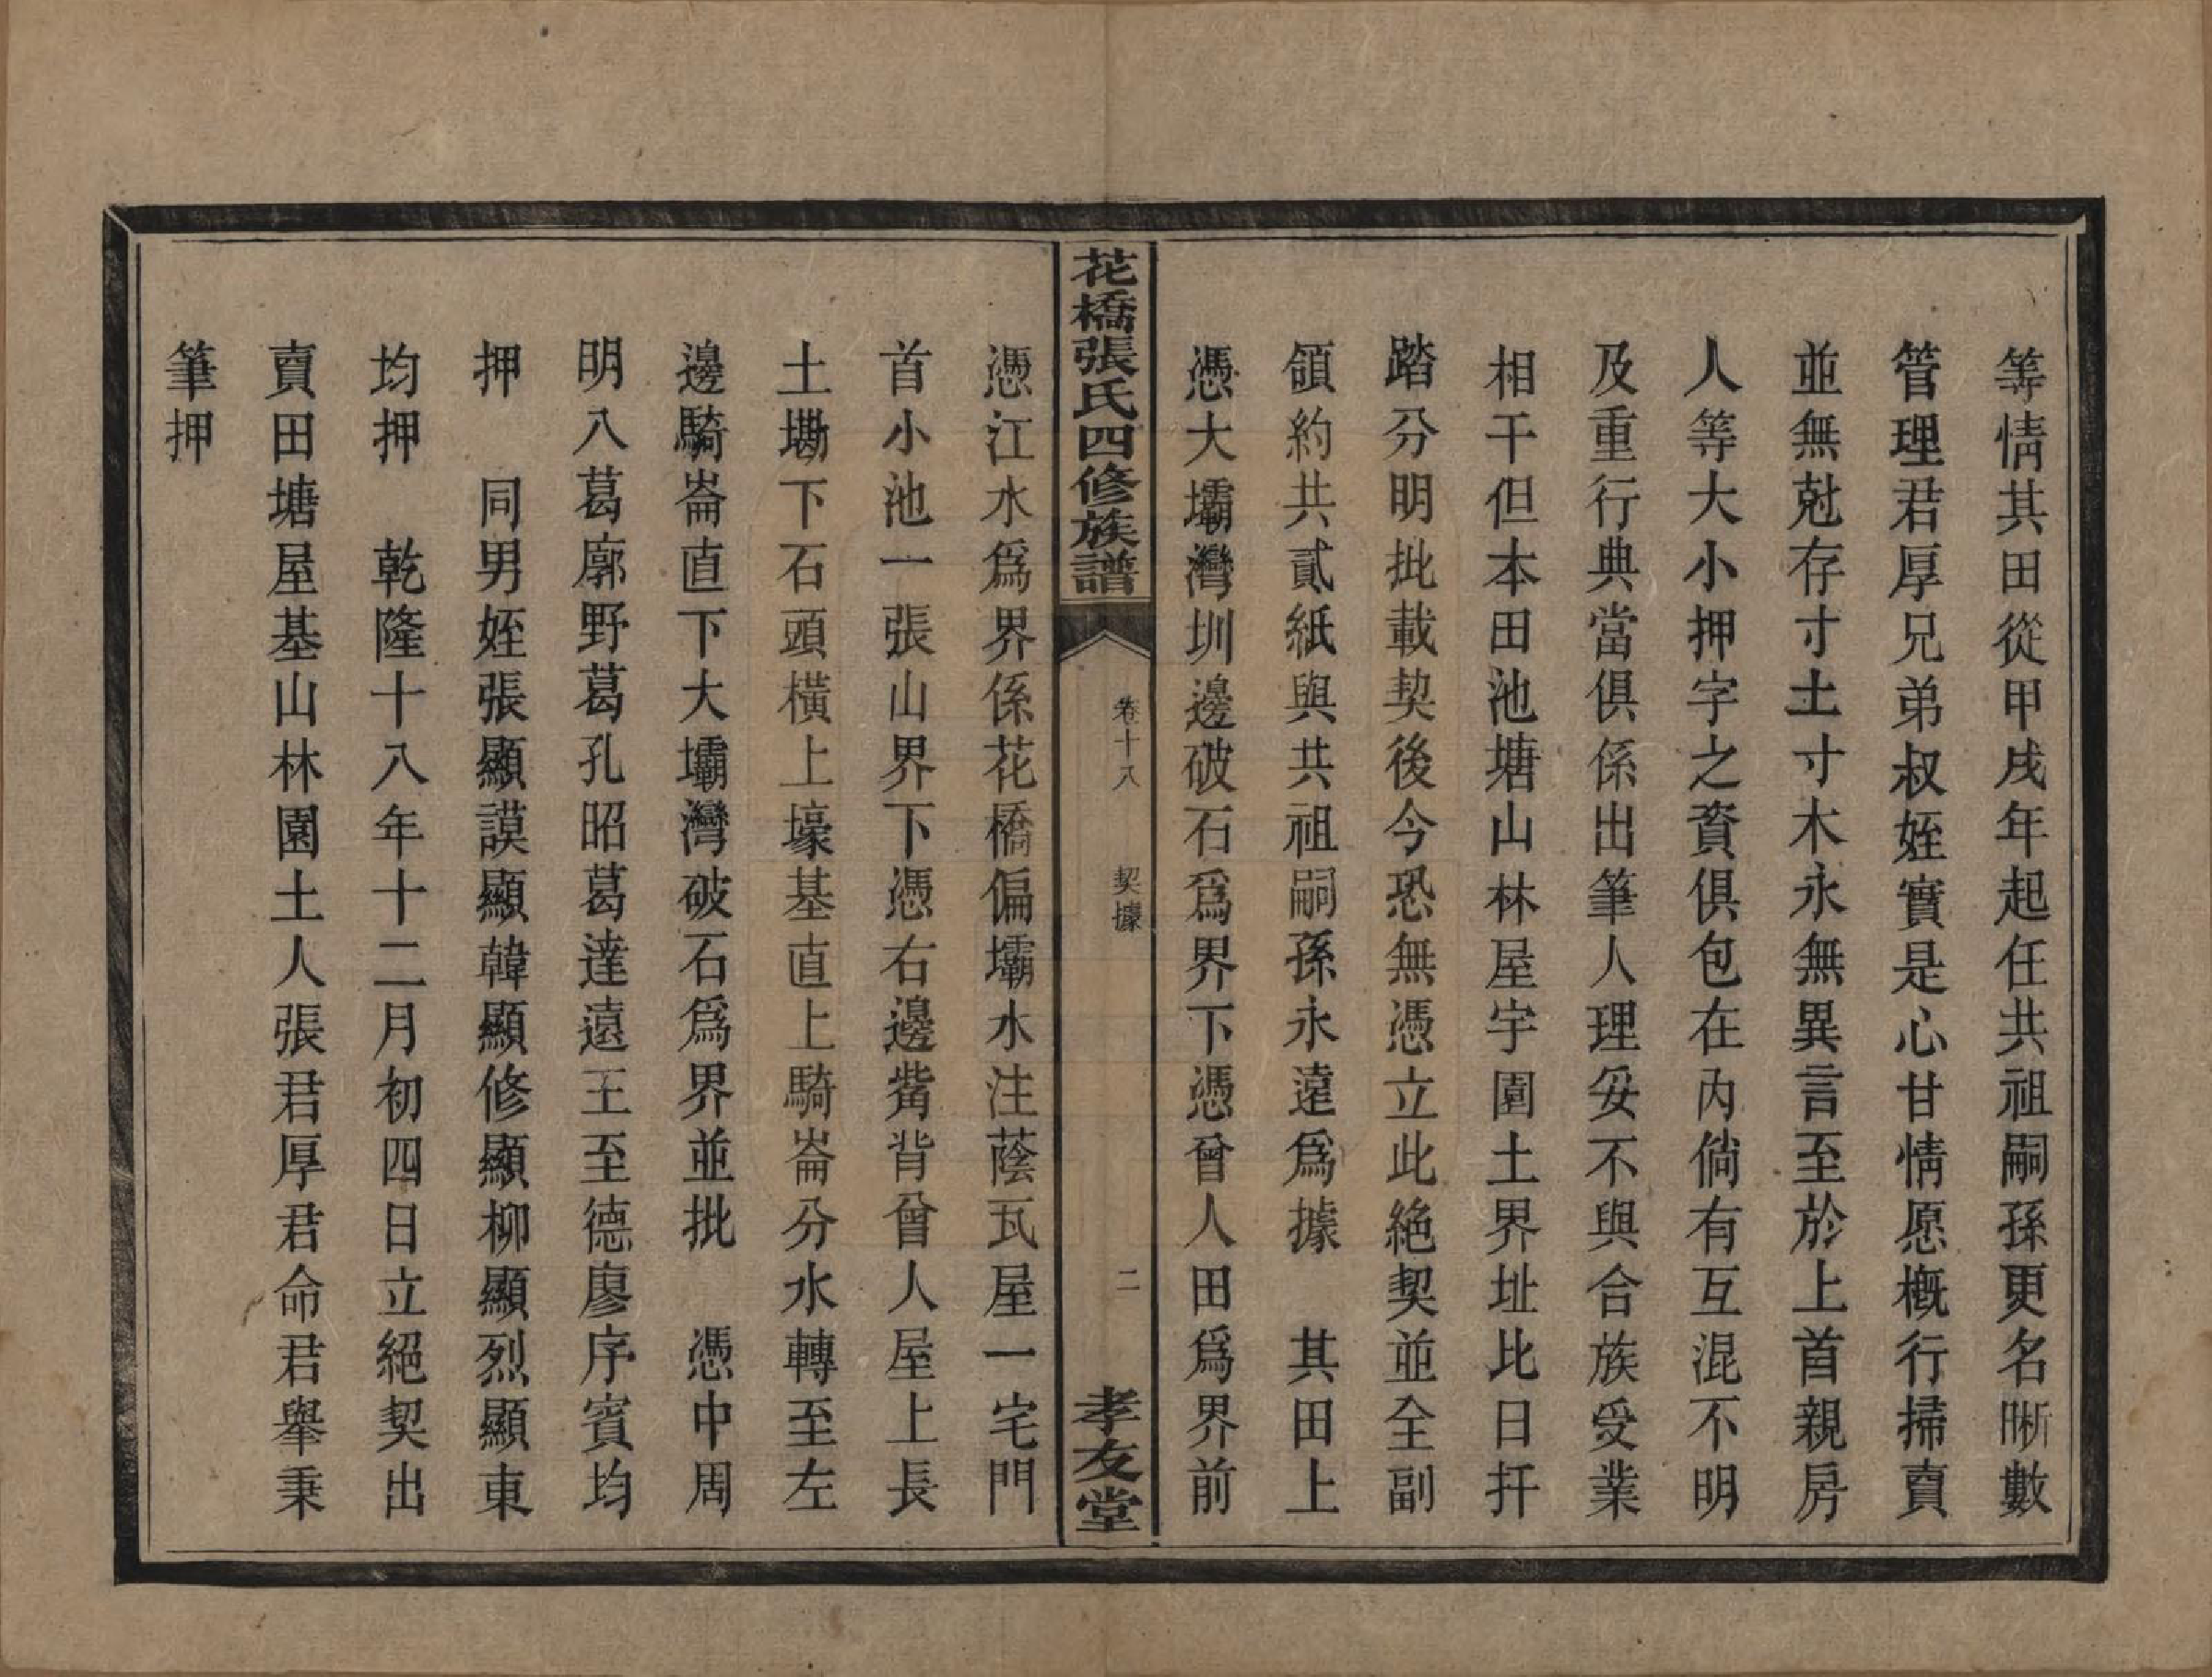 等情其田從甲戌年起任共祖嗣孫更名晰數
管理君厚兄弟叔姪實是心甘情愿槪行掃賣
並無尅存寸土寸木永無異言至於上首親房
人等大小押字之賫俱包在內倘有互混不明
及重行典當俱係出筆人理妥不與合族受業
相干但本田池塘山林屋宇園土界址比日扦
踏分明批載契後今恐無憑立此絶契並全副
領約共貳紙與共祖嗣孫永遠爲據　其田上
憑大壩灣圳邊破石爲界下憑曾人田爲界前
花橋張氏四修族譜
卷十八　契據
二
孝友堂
憑江水爲界係花橋偏壩水注蔭瓦屋一宅門
首小池一張山界下憑右邊觜背曾人屋上長
土墈下石頭橫上壕基直上騎崙分水轉至左
邊騎崙直下大壩灣破石爲界並批　憑中周
明八葛廓野葛孔昭葛達遠王至德廖序賓均
押　同男姪張顯謨顯韓顯修顯柳顯烈顯東
均押　乾隆十八年十二月初四日立絕契出
賣田塘屋基山林園土人張君厚君命君舉秉
筆押